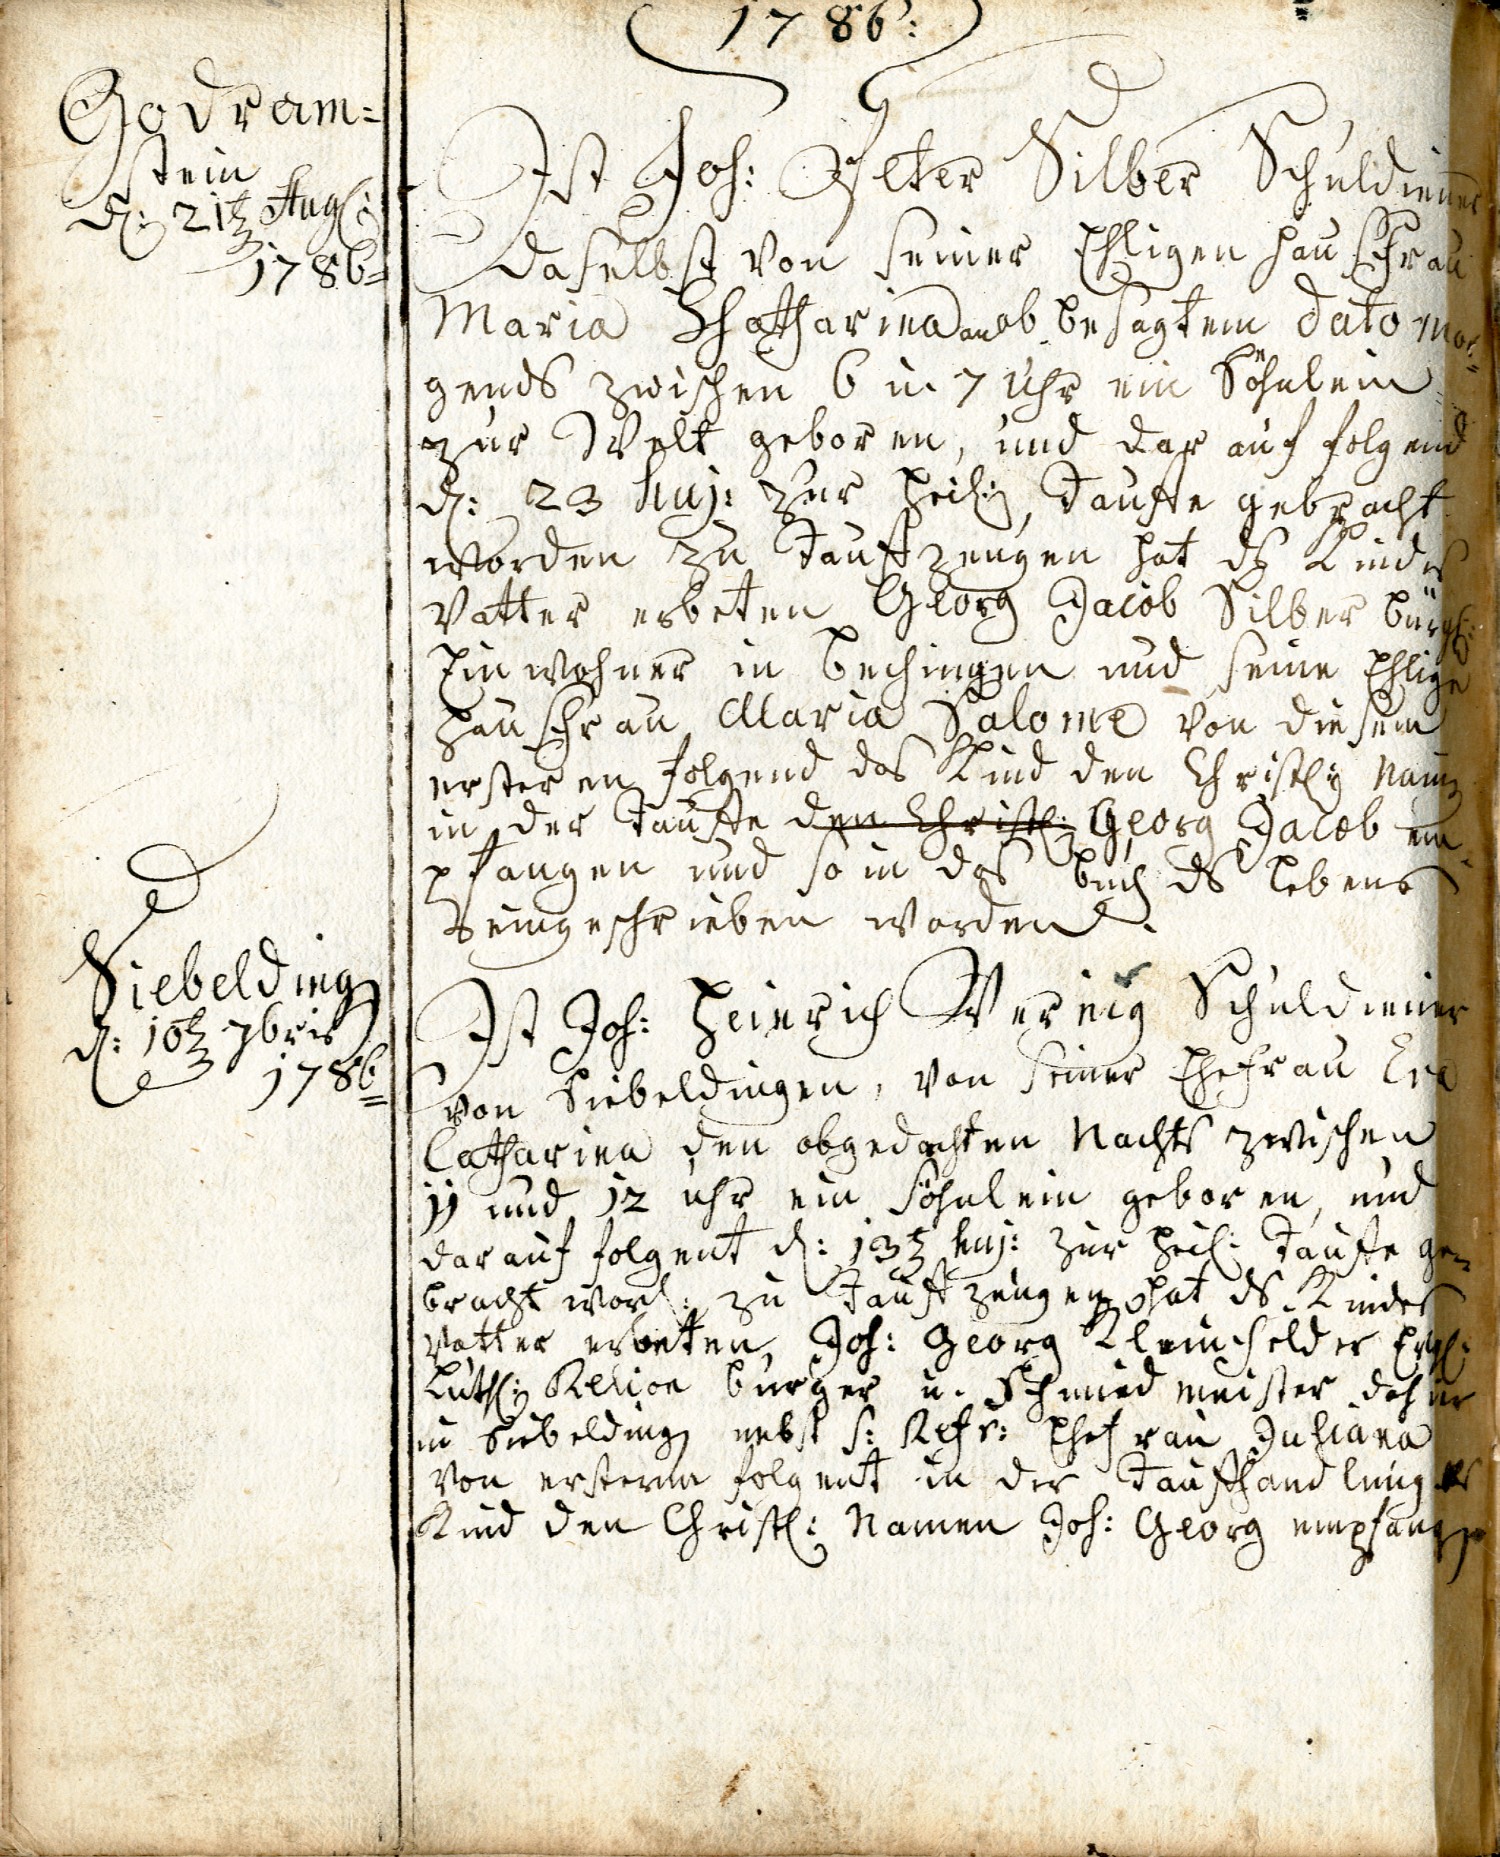 1786:
Godram=
stein
d: 21t Aug:
1786=
Ist Joh: Peter Silber Schuldiener
daselbst von seiner Ehligen Hausfrau
Maria Chatharina an ob besagtem dato mor=
gends zwischen 6 u. 7 Uhr ein Söhnlein
zur Welt geboren, und dar auf folgend
d: 23 huj: zur Heil: Tauffe gebracht
worden zu Tauffzeugen hat ds Kindes
Vatter erbeten Georg Jacob Silber bürgl:
Einwohner in Bechingen und seine Ehlige
Hausfrau Maria Salome von diesem
ersteren folgend das Kind den Christl: Namen
in der Tauffe den Christl: Georg Jacob em=
pfangen und so in das Buch ds Lebens
eingeschrieben worden.
Siebelding
d: 10t 7bris
1786
Ist Joh: Heinrich Wernig Schuldiener
von Siebeldingen, von seiner Ehefrau Eva
Catharina den obgedachten Nachts zwischen
11 und 12 uhr ein söhnlein geboren, und
darauf folgent d: 13t huj: zur Heil: Tauffe ge=
bracht word: zu Tauffzeugen hat ds Kindes
Vatter erbeten, Joh: Georg Kleinfelder Evgl:
Luth: Relion burger u. Schmied meister dahier
in Siebelding nebst s: Refr: Ehefrau Juliana
von ersterm folgent in der Tauffhandlung
Kind den Christl: Namen Joh: Georg empfangen